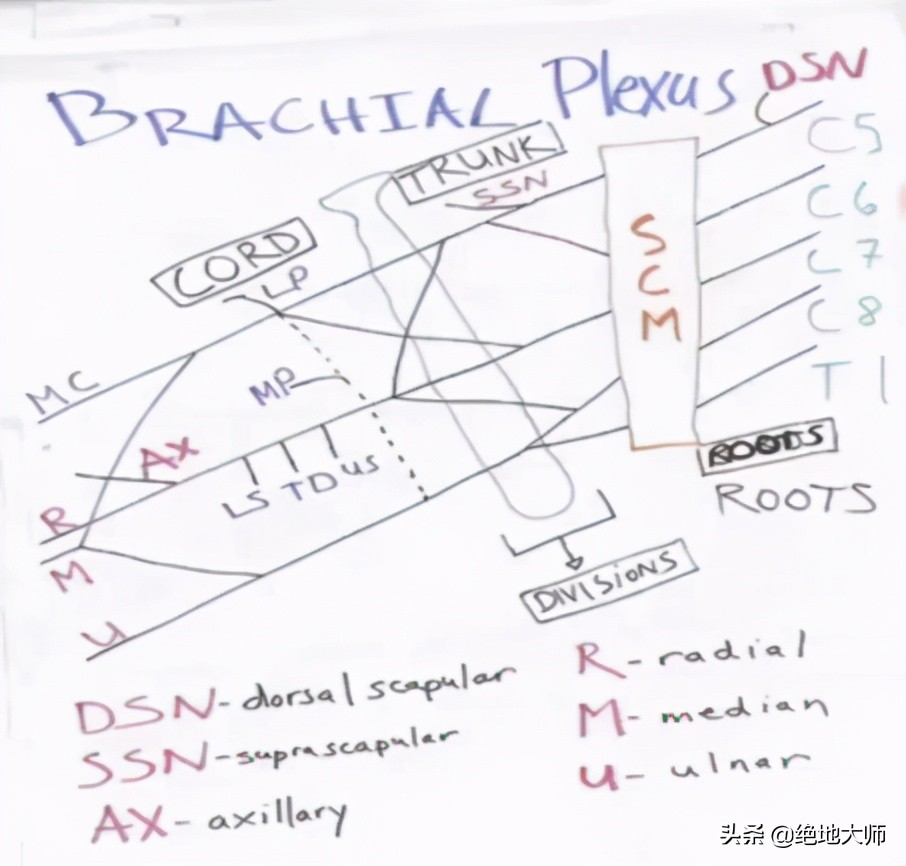 BRACHIAL Plexus
DSN
C5
TRUNK
SSN
C6
SCM
CORD
LP
C7
C8
MC
MP
T1
AX
LS TD US
ROOTS
ROOTS
R
M
U
DIVISIONS
DSN-dorsal scapular
R-radial
SSN-suprascapular
M-median
AX-axillary
U-ulnar
头条 @绝地大师